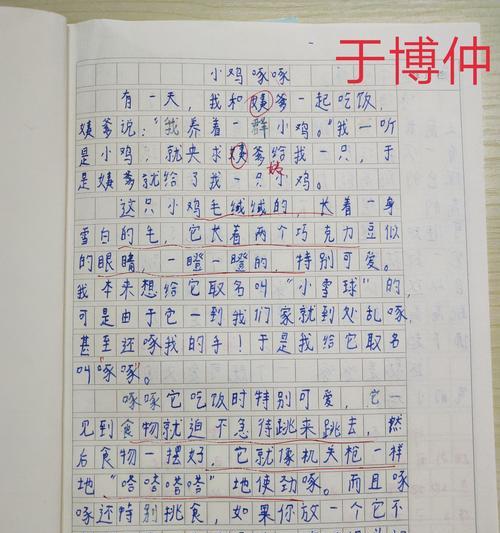 于博仲
小鸡啄啄
有一天，我和姨爹一起吃饭，
姨爹说："我养着一群小鸡。"我一听
是小鸡，就央求姨爹给我一只，于
是姨爹就给了我一只小鸡。
这只小鸡毛绒绒的，长着一身
雪白的毛，它长着两个巧克力豆似
的眼睛，一瞪一瞪的，特别可爱。
我本来想给它取名叫"小雪球"的，
可是由于它一到我们家就到处乱啄，
甚至还啄我的手！于是我给它取名
叫"啄啄"。
啄啄它吃饭时特别可爱，它一
见到食物就迫不急待跳来跳去，然
后食物一摆好，它就像机关枪一样
地"嗒嗒嗒嗒"地使劲啄。而且啄
啄还特别挑食，如果你放一个它不